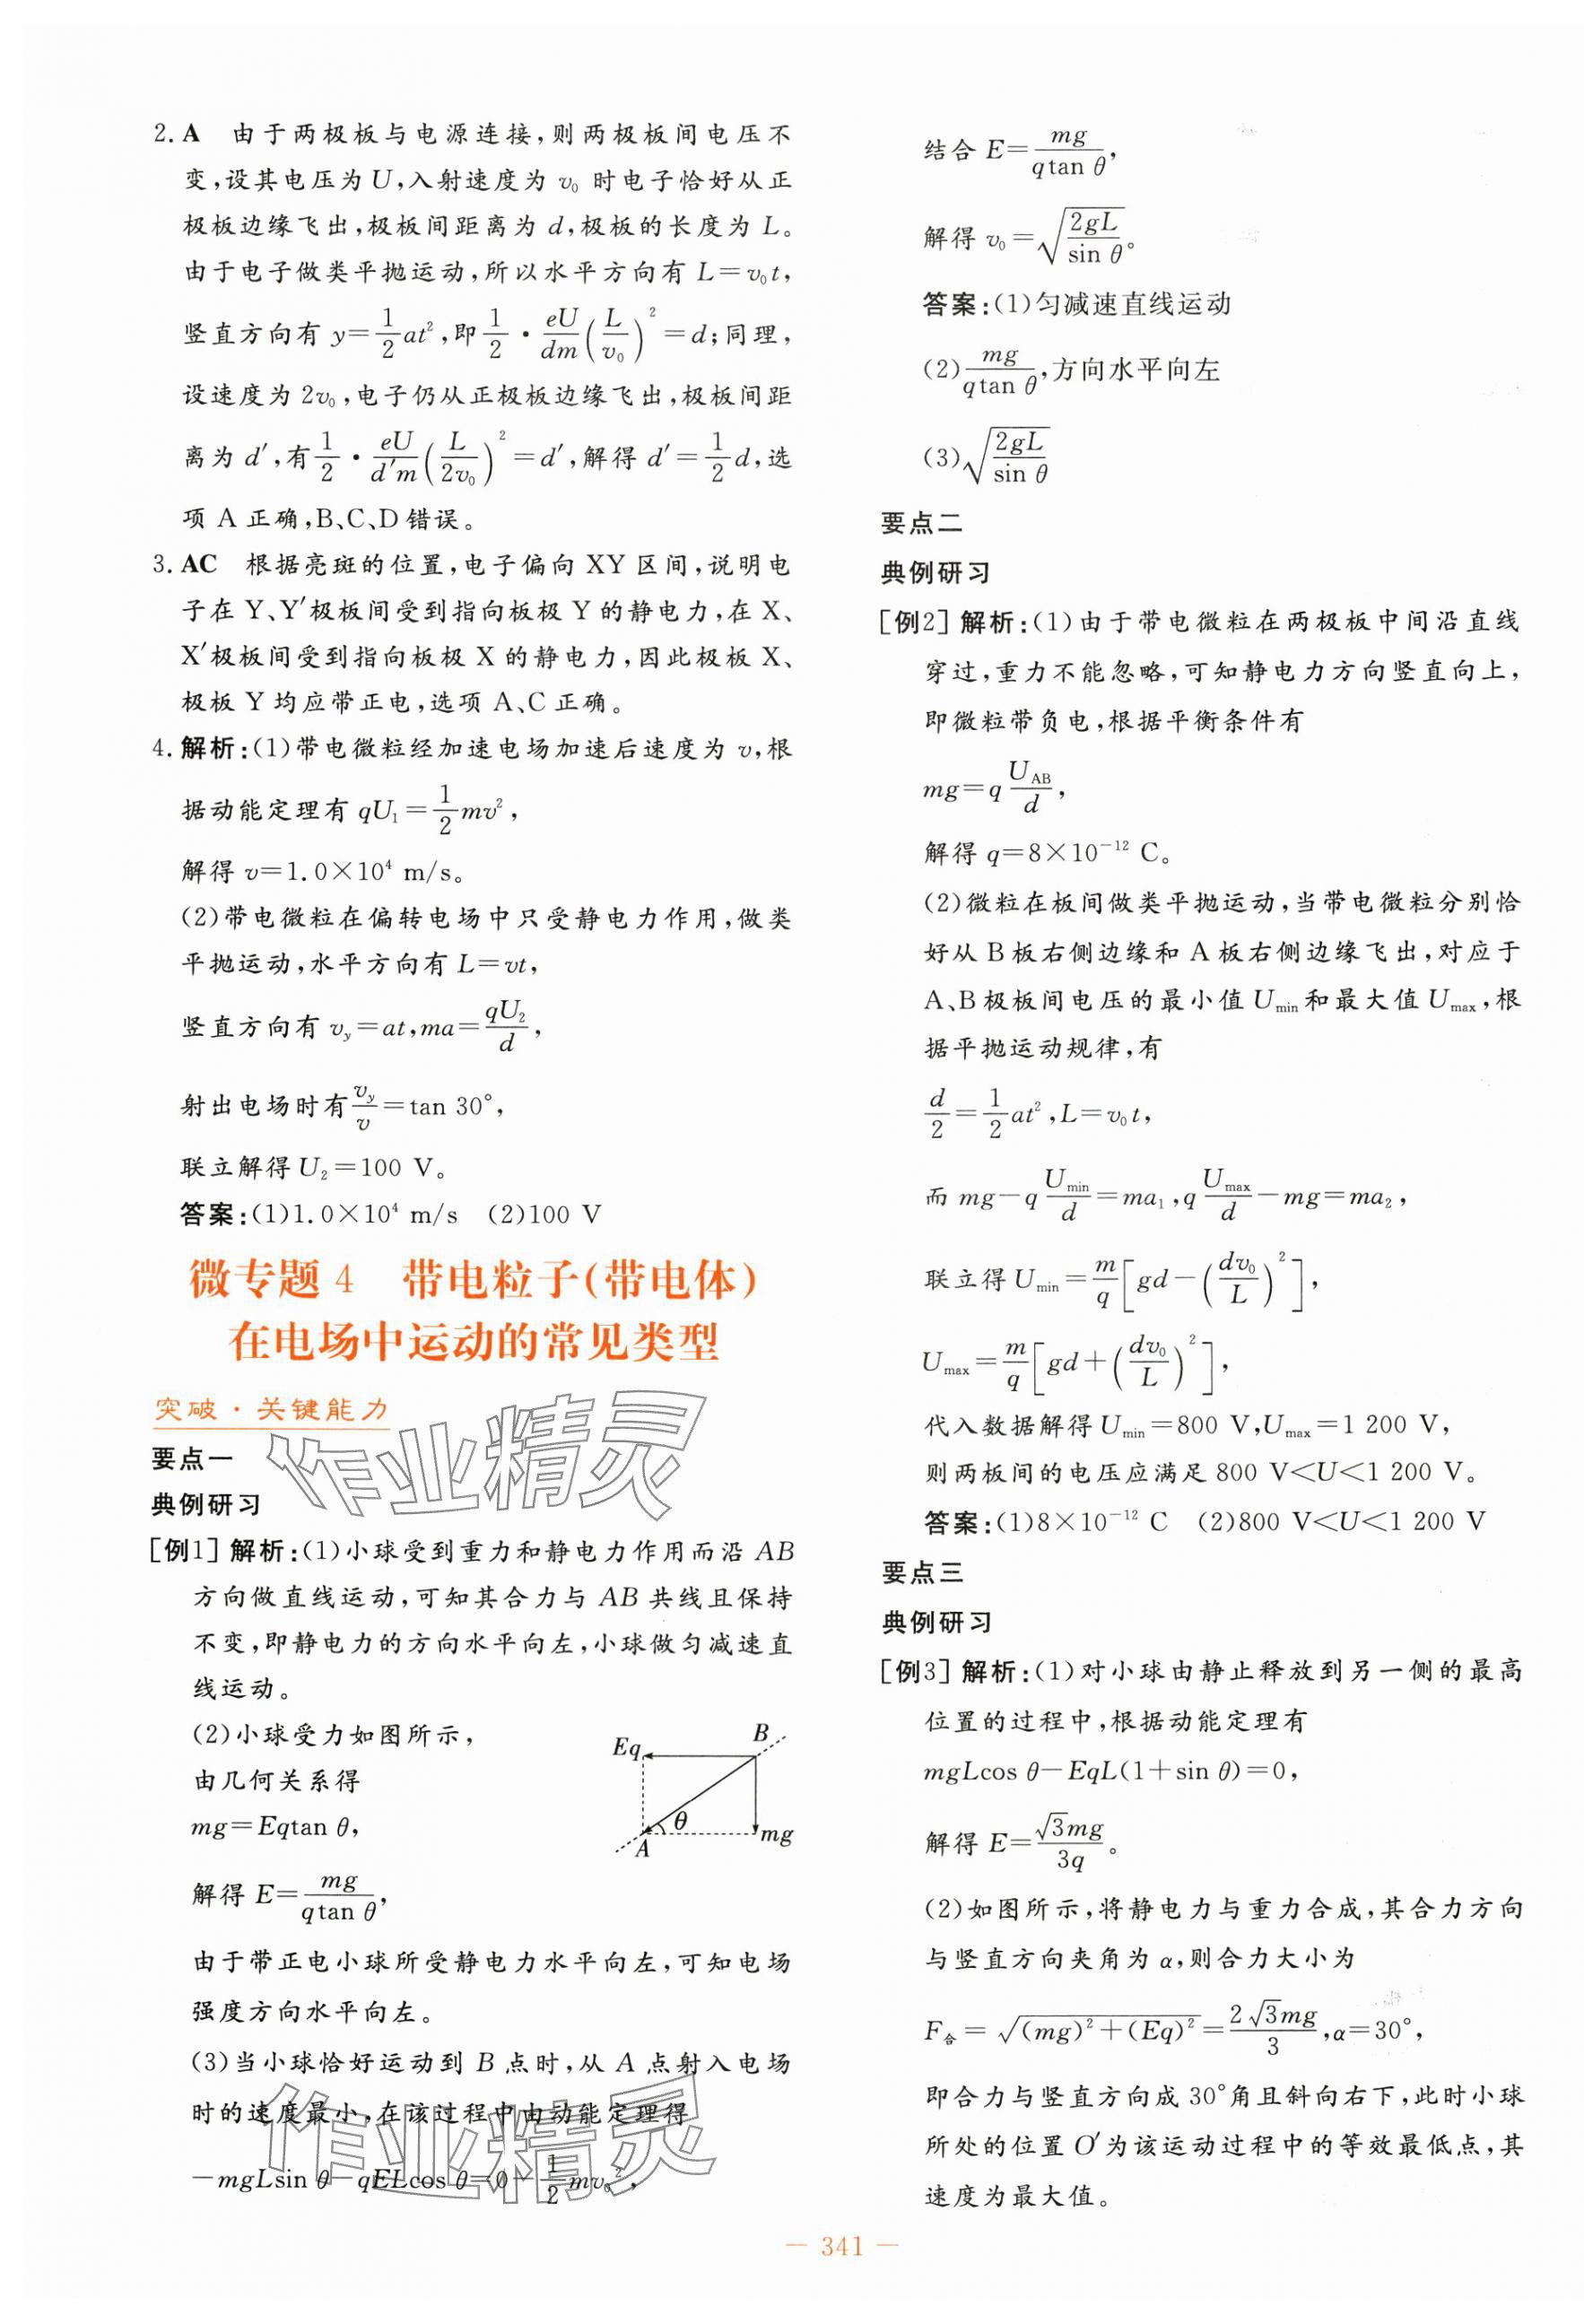 2. A 由于两极板与电源连接,则两极板间电压不
变,设其电压为 U,入射速度为 v₀ 时电子恰好从正
极板边缘飞出,极板间距离为 d,极板的长度为 L。
由于电子做类平抛运动,所以水平方向有 L=v₀t,
竖直方向有 y=1/2 at²,即 1/2 · eU/dm (L/v₀)²=d;同理,
设速度为 2v₀,电子仍从正极板边缘飞出,极板间距
离为 d′,有 1/2 · eU/d′m (L/2v₀)²=d′,解得 d′=1/2 d,选
项 A 正确,B、C、D 错误。
3. AC 根据亮斑的位置,电子偏向 XY 区间,说明电
子在 Y、Y′极板间受到指向板极 Y 的静电力,在 X、
X′极板间受到指向板极 X 的静电力,因此极板 X、
极板 Y 均应带正电,选项 A、C 正确。
4. 解析:(1)带电微粒经加速电场加速后速度为 v,根
据动能定理有 qU₁=1/2 mv²,
解得 v=1.0×10⁴ m/s。
(2)带电微粒在偏转电场中只受静电力作用,做类
平抛运动,水平方向有 L=vt,
竖直方向有 v_y=at,ma=qU₂/d,
射出电场时有 v_y/v=tan 30°,
联立解得 U₂=100 V。
答案:(1)1.0×10⁴ m/s (2)100 V
微专题 4 带电粒子(带电体)
在电场中运动的常见类型
突破·关键能力
要点一
典例研习
[例1] 解析:(1)小球受到重力和静电力作用而沿 AB
方向做直线运动,可知其合力与 AB 共线且保持
不变,即静电力的方向水平向左,小球做匀减速直
线运动。
(2)小球受力如图所示,
由几何关系得
mg=Eqtan θ,
Eq
B
θ
A
mg
解得 E=mg/(qtan θ),
由于带正电小球所受静电力水平向左,可知电场
强度方向水平向左。
(3)当小球恰好运动到 B 点时,从 A 点射入电场
时的速度最小,在该过程中由动能定理得
-mgLsin θ-qELcos θ=0-1/2 mv₀²,
结合 E=mg/(qtan θ),
解得 v₀=√(2gL/sin θ)。
答案:(1)匀减速直线运动
(2)mg/(qtan θ),方向水平向左
(3)√(2gL/sin θ)
要点二
典例研习
[例2] 解析:(1)由于带电微粒在两极板中间沿直线
穿过,重力不能忽略,可知静电力方向竖直向上,
即微粒带负电,根据平衡条件有
mg=q U_AB/d,
解得 q=8×10⁻¹² C。
(2)微粒在板间做类平抛运动,当带电微粒分别恰
好从 B 板右侧边缘和 A 板右侧边缘飞出,对应于
A、B 极板间电压的最小值 U_min 和最大值 U_max,根
据平抛运动规律,有
d/2=1/2 at²,L=v₀t,
而 mg-q U_min/d=ma₁,q U_max/d-mg=ma₂,
联立得 U_min=m/q[gd-(dv₀/L)²],
U_max=m/q[gd+(dv₀/L)²],
代入数据解得 U_min=800 V,U_max=1 200 V,
则两板间的电压应满足 800 V<U<1 200 V。
答案:(1)8×10⁻¹² C (2)800 V<U<1 200 V
要点三
典例研习
[例3] 解析:(1)对小球由静止释放到另一侧的最高
位置的过程中,根据动能定理有
mgLcos θ-EqL(1+sin θ)=0,
解得 E=√3mg/3q。
(2)如图所示,将静电力与重力合成,其合力方向
与竖直方向夹角为 α,则合力大小为
F合=√((mg)²+(Eq)²)=2√3mg/3,α=30°,
即合力与竖直方向成 30°角且斜向右下,此时小球
所处的位置 O′为该运动过程中的等效最低点,其
速度为最大值。
— 341 —
作业精灵
作业精灵